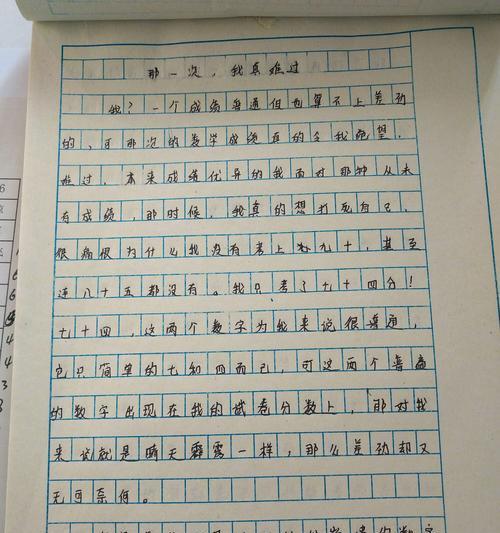 那一次，我真难过
我？一个成绩普通但也算不上差劲
的，可那次的数学成绩真的令我绝望，
难过，本来成绩优异的我面对那种从未
有成绩，那时候，我真的想打死自己，
很痛恨为什么我没有考上九十，甚至
连八十五都没有。我只考了七十四分！
七十四，这两个数字为我来说很普通，
它只简单的七和四而已，可这两个普通
的数字出现在我的试卷分数上，那对我
来说就是晴天霹雳一样，那么差劲却又
无可奈何。